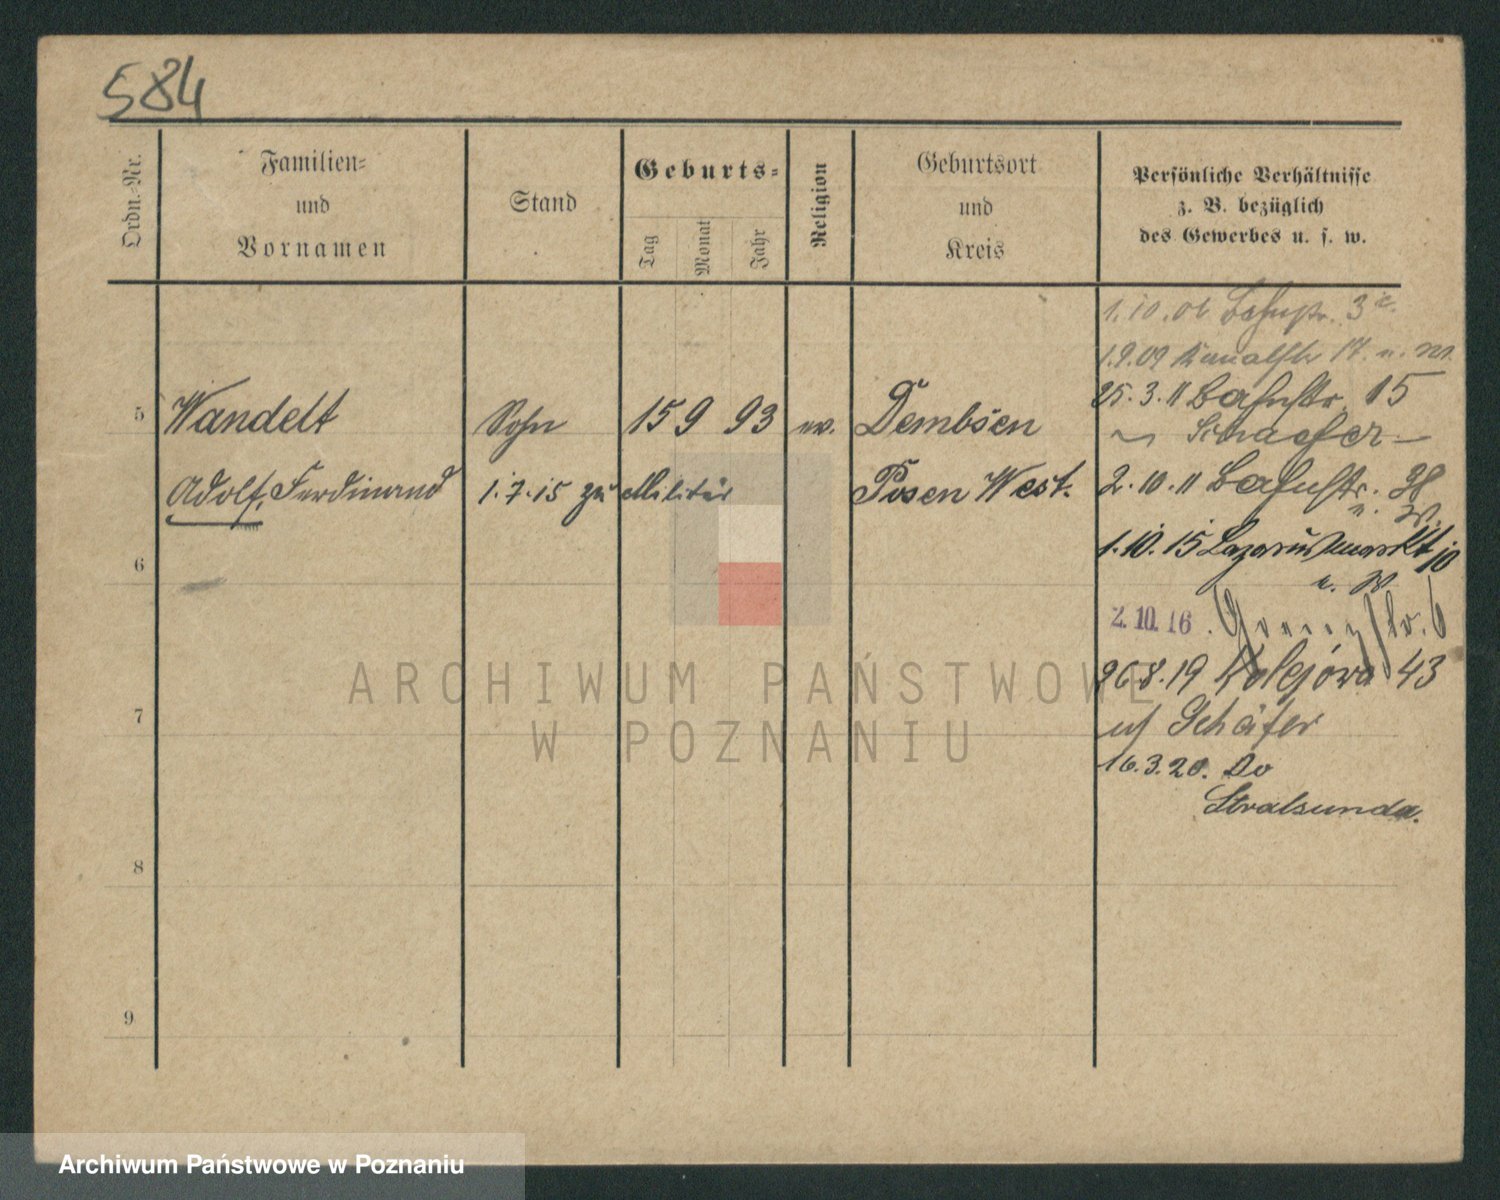 584
Ordn.-Nr.
Familien-
und
Vornamen
Stand
Geburts-
Tag
Monat
Jahr
Religion
Geburtsort
und
Kreis
Persönliche Verhältnisse
z. B. bezüglich
des Gewerbes u. s. w.
1.10.06 Bahnstr. 3
1.9.09 Kanalstr 17. u. W.
25.3.11 Bahnstr. 15
5 Wandelt Sohn 15 9 93 ev. Dembsen
Schaefer
Adolf, Ferdinand 1.7.15 zu Militär Posen West. 2.10.11 Bahnstr. 38
u. W.
6 1.10.15 Lazarusmarkt 10
u. W.
2.10.16. str. 6
26.8.19 Kolejowa 43
7 Schäfer
16.3.20. Do
Stralsunda.
8
9
ARCHIWUM PAŃSTWOWE
W POZNANIU
Archiwum Państwowe w Poznaniu